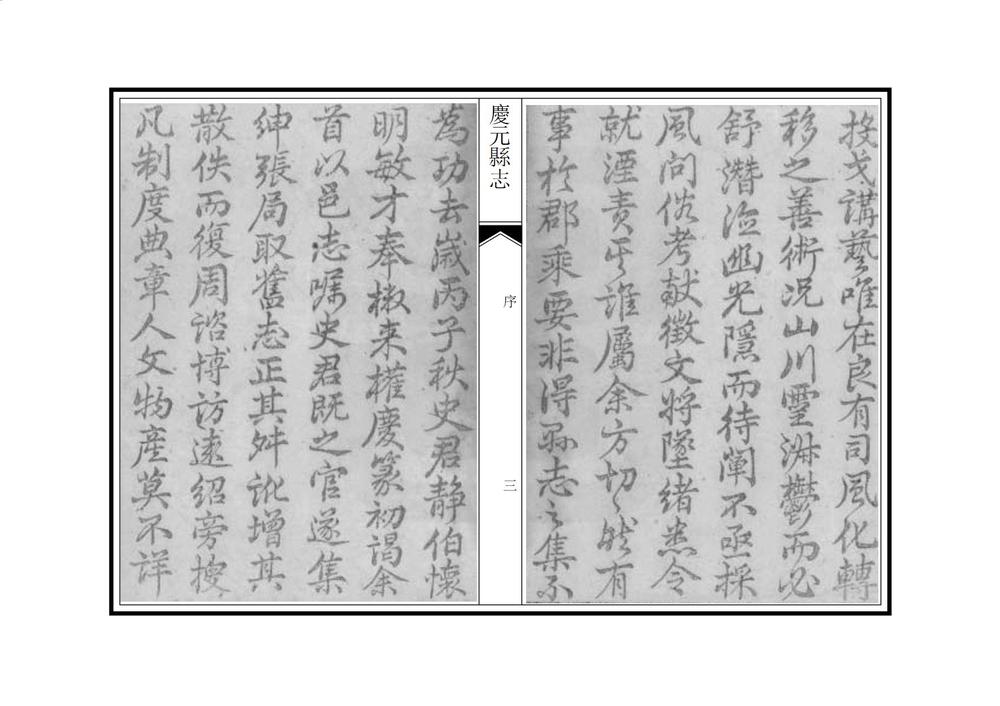 投戈講藝唯在良有司風化轉
移之善術況山川靈淑鬱而必
舒潛泣幽光隱而待闡不亟採
風問俗考献徵文將墜緒悉令
就湮責其誰屬余方切〻然有
事於郡乘要非得縣志之集不
慶元縣志
序
三
為功去歲丙子秋史君静伯懷
明敏才奉檄来權慶篆初謁余
首以邑志嘱史君既之官遂集
紳張局取舊志正其舛訛增其
散佚而復周諮博訪遠紹旁搜
凡制度典章人文物產莫不詳